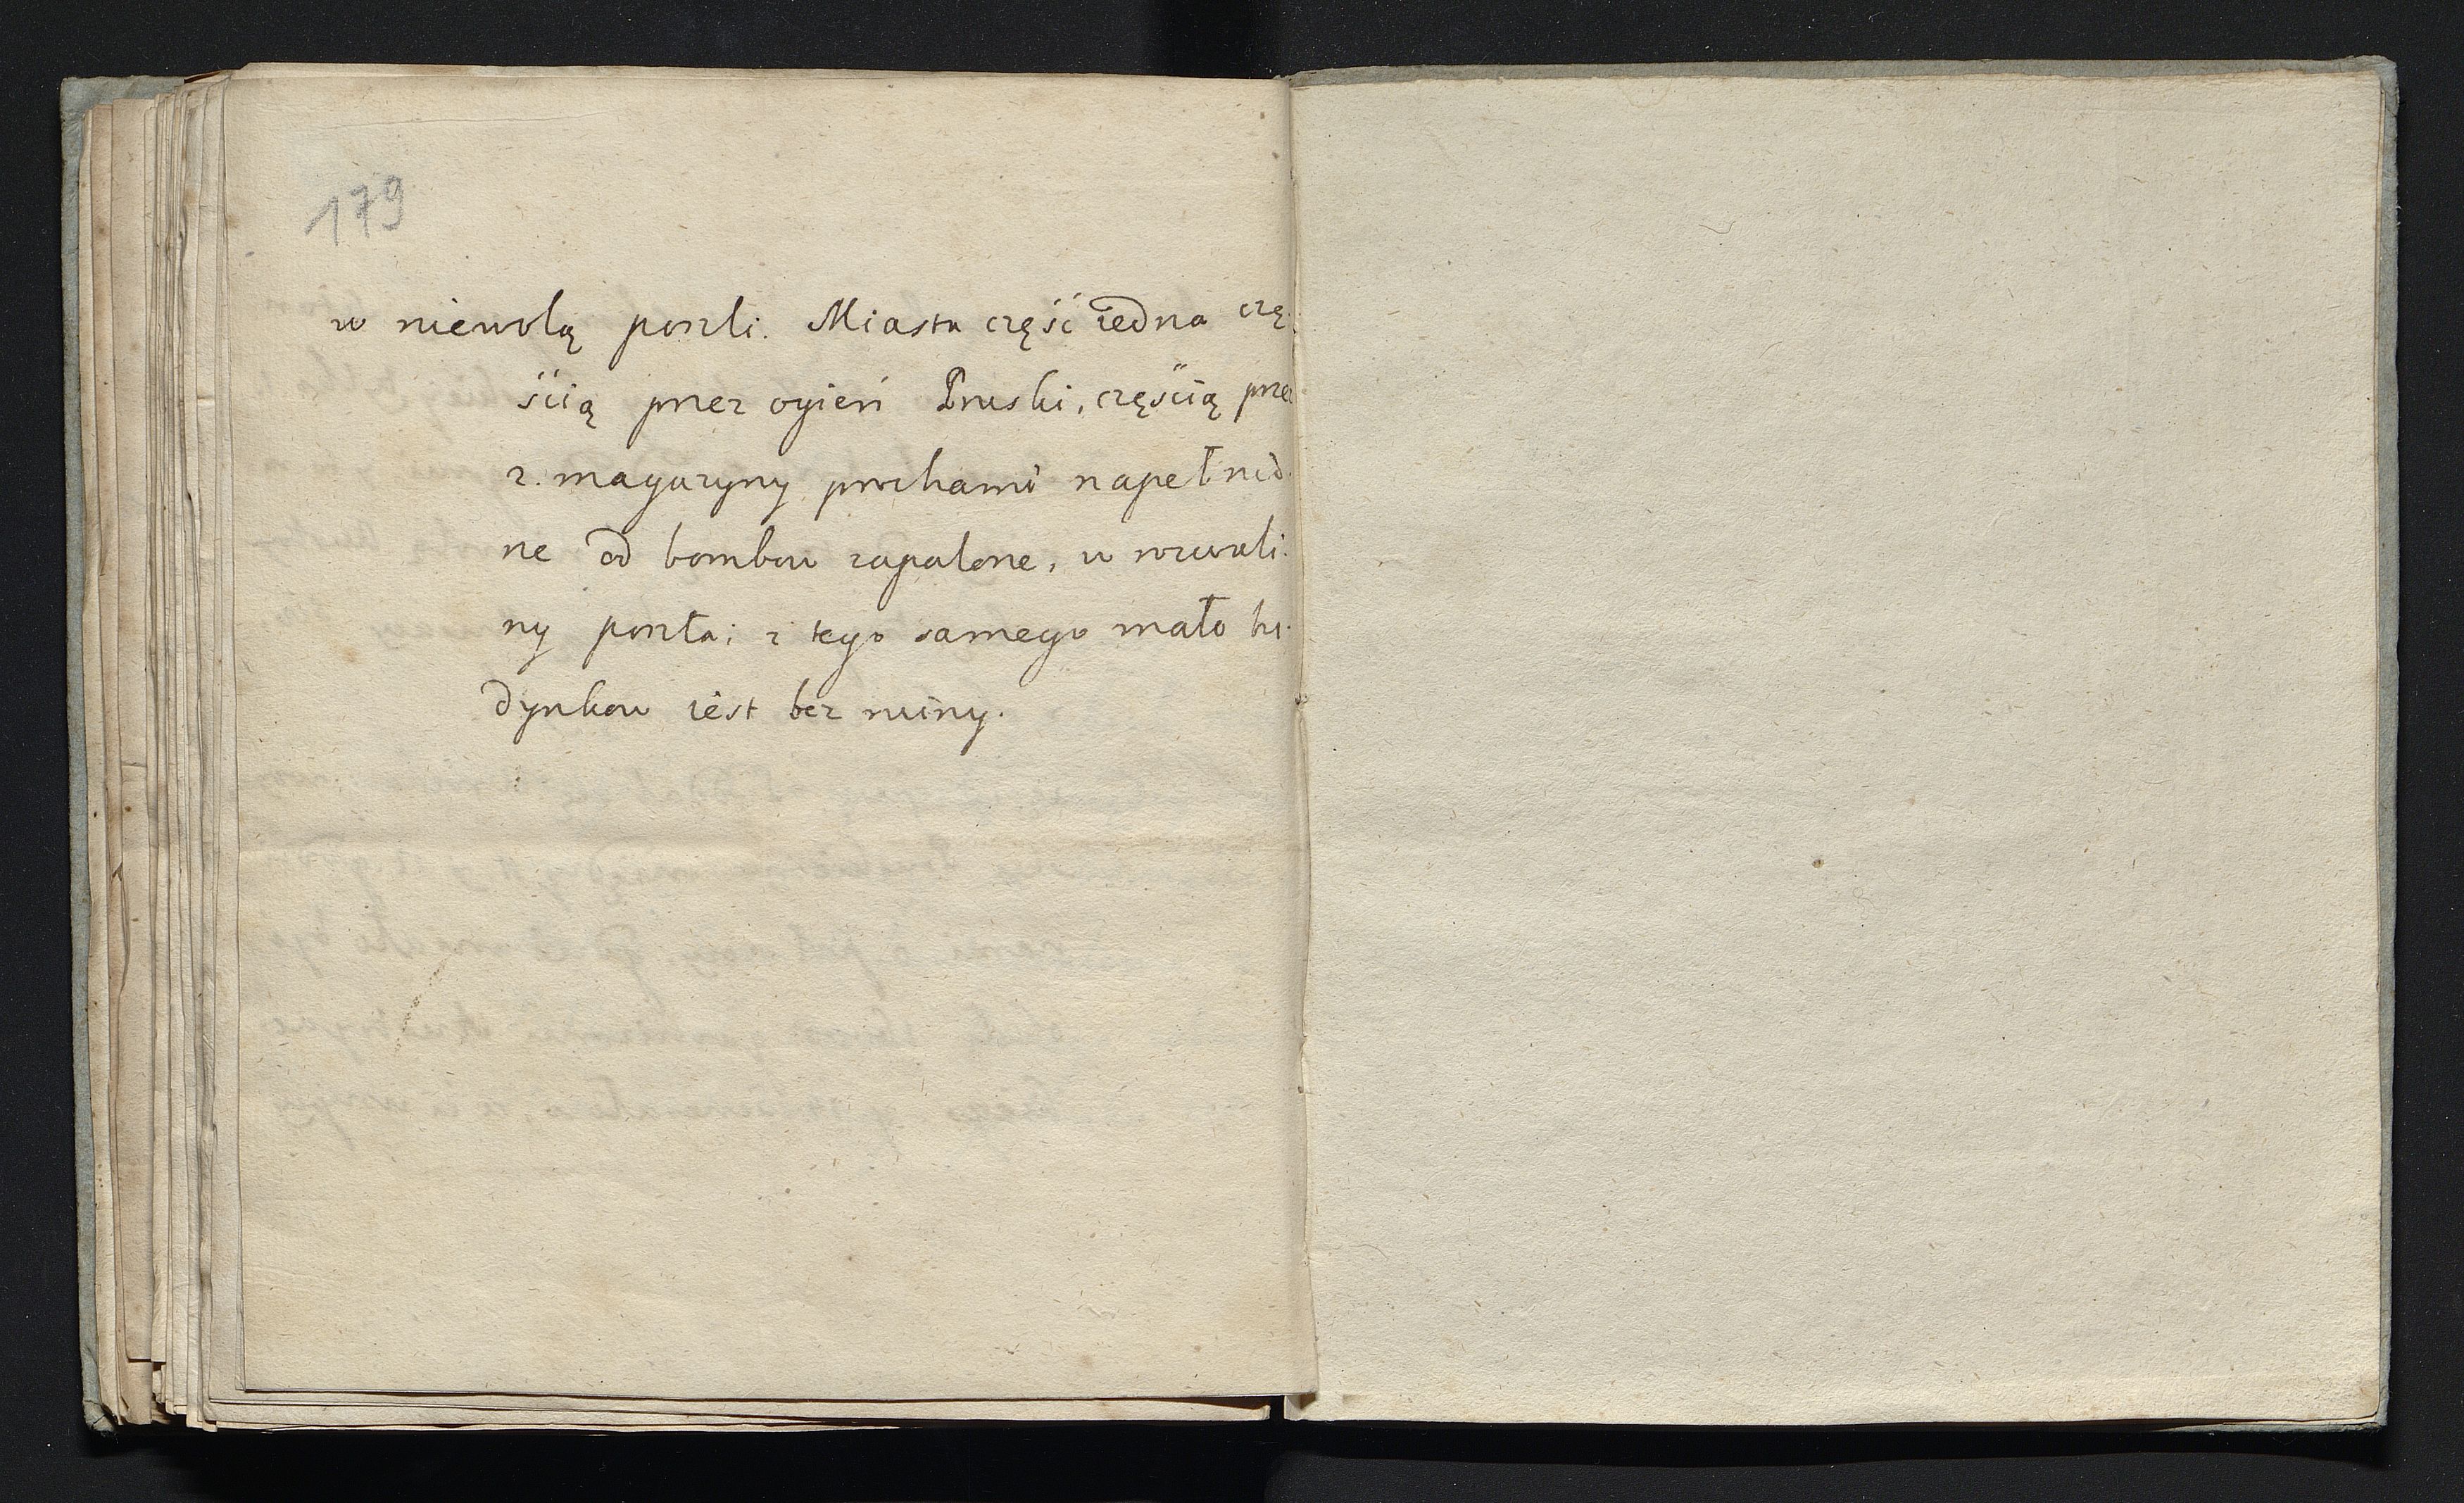 179
w niewolą poszli. Miasta część iedna czę.
ścią przez ogień Pruski, częścią prze
z. magazyny prochami napełnio.
ne od bombow zapalone, w rozwali.
ny poszła; z tego samego mało bu.
dynkow iest bez ruiny.